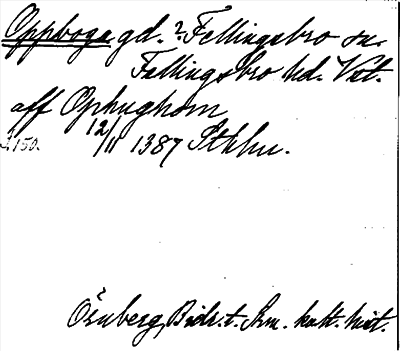 Oppboga gd. ? Fellingsbro sn.
Fellingsbro hd. Vstl.
aff Ophughom
12/11 1387 Sthlm.
s. 150.
Örnberg, Bidr. t. Sven. kult. hist.